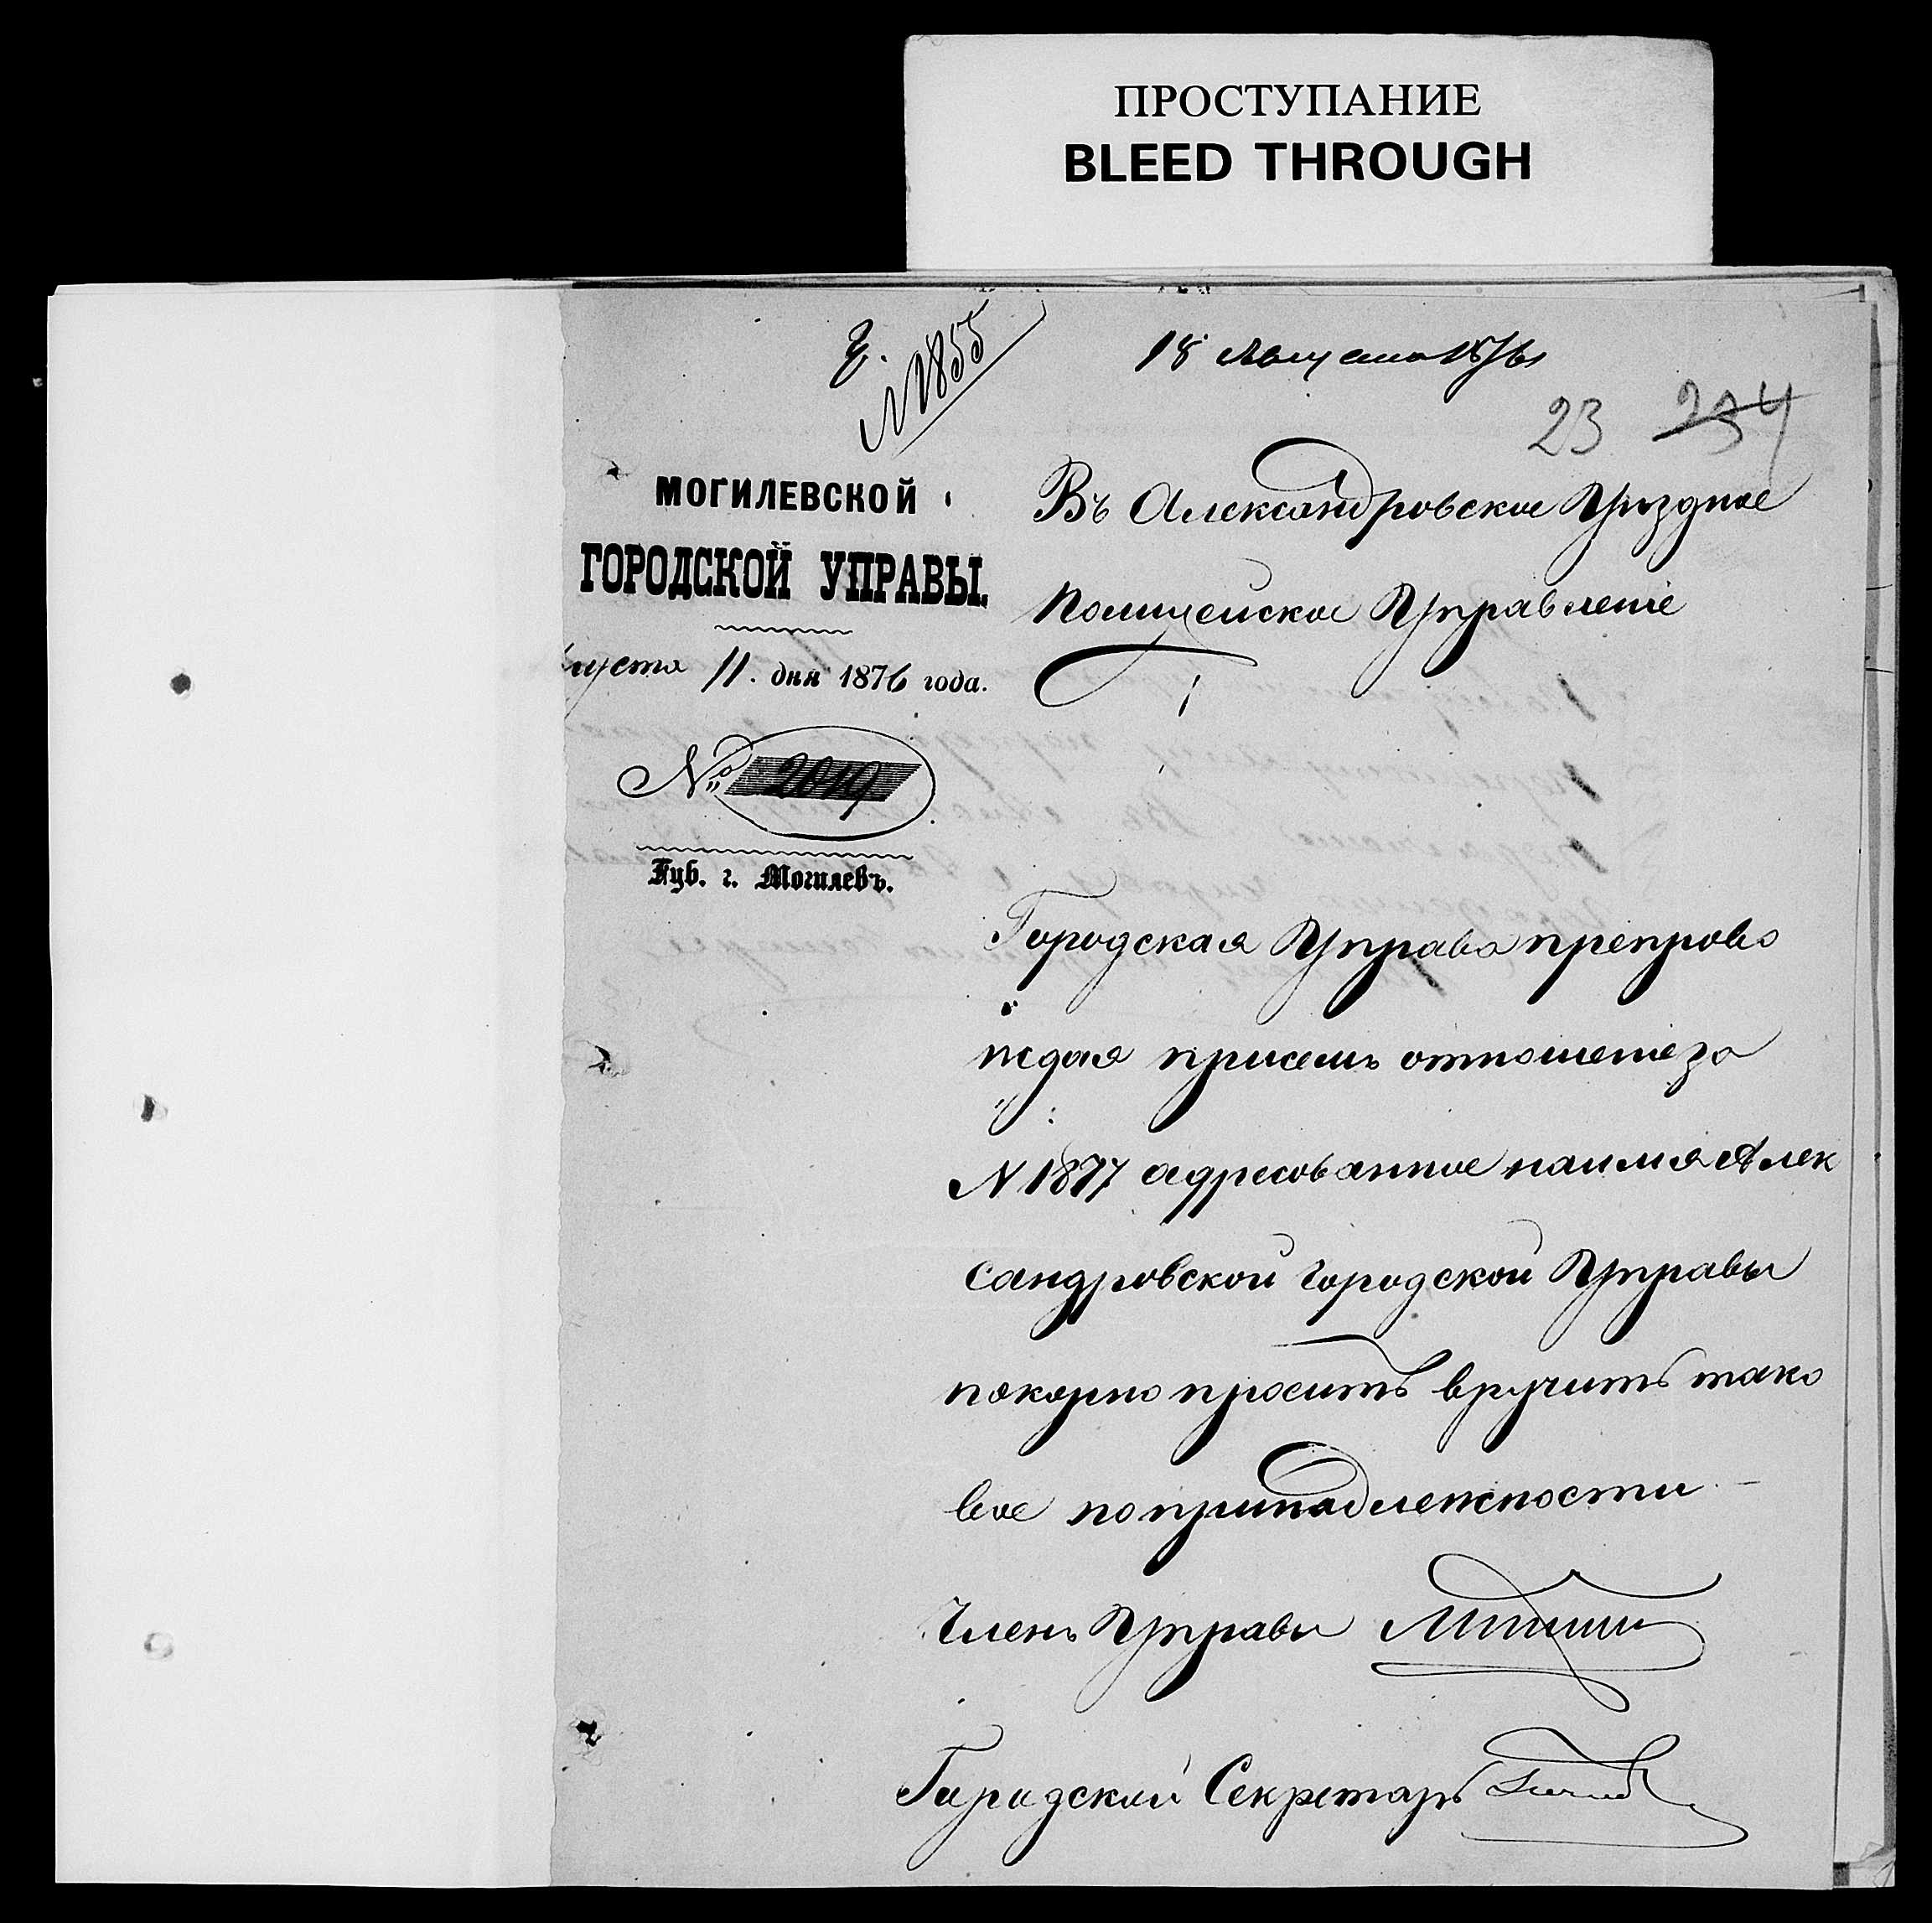 ПРОСТУПАНИЕ
BLEED THROUGH
N 1855
18 Августа 1876
23 234
МОГИЛЕВСКОЙ
ГОРОДСКОЙ УПРАВЫ.
густа 11. дня 1876 года.
№ 2019
Губ. г. Могилевъ.
Въ Александровское Уѣздное
Полицейское Управленіе
Городская Управа препрово
ждая присемъ отношеніе за
N 1877 адресованное на имя Алек
сандровской Городской Управы
покорно проситъ вручить тако
вое по принадлежности
Членъ Управы
Городской Секретарь